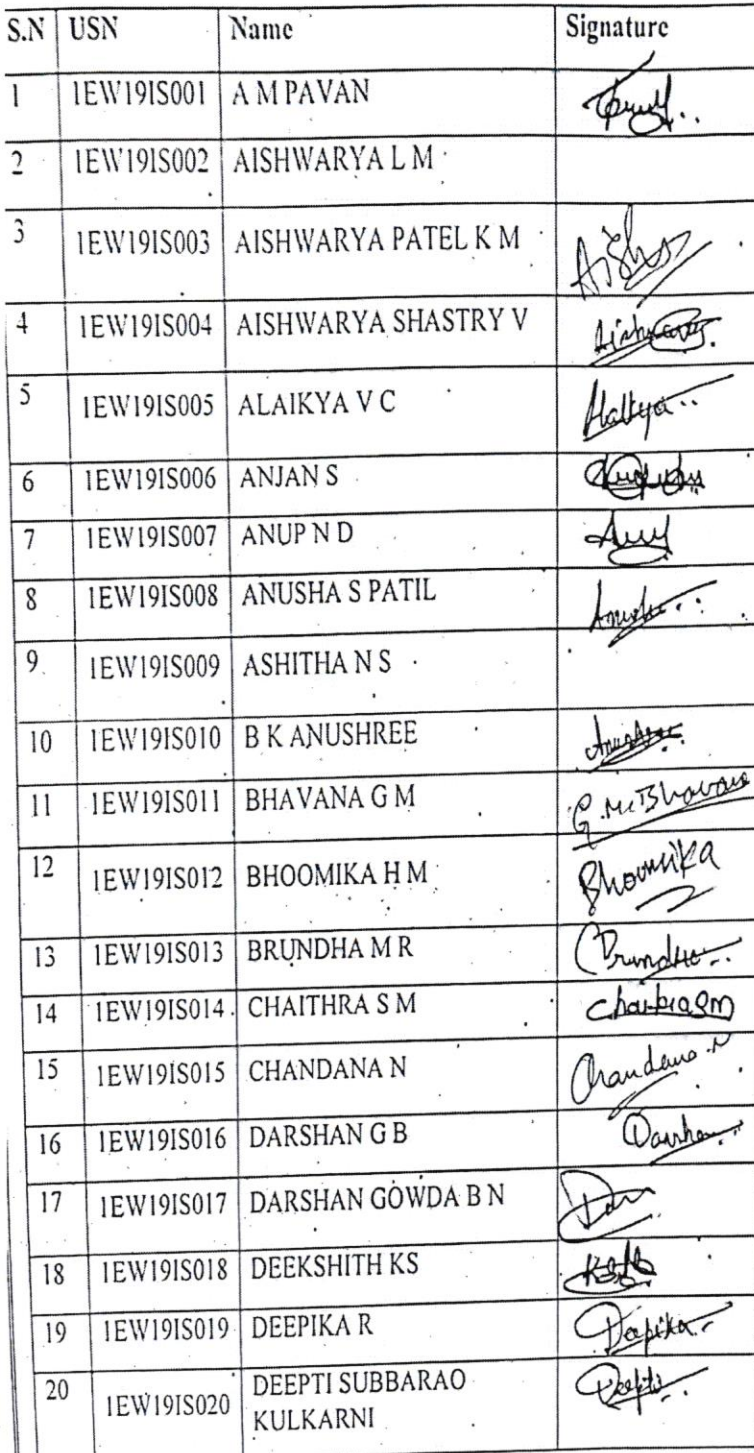 S.N USN Name Signature
1 1EW19IS001 A M PAVAN
2 1EW19IS002 AISHWARYA L M
3 1EW19IS003 AISHWARYA PATEL K M
4 1EW19IS004 AISHWARYA SHASTRY V
5 1EW19IS005 ALAIKYA V C
6 1EW19IS006 ANJAN S
7 1EW19IS007 ANUP N D
8 1EW19IS008 ANUSHA S PATIL
9 1EW19IS009 ASHITHA N S
10 1EW19IS010 B K ANUSHREE
11 1EW19IS011 BHAVANA G M G.M.Bhavana
12 1EW19IS012 BHOOMIKA H M Bhoomika
13 1EW19IS013 BRUNDHA M R Brundha
14 1EW19IS014 CHAITHRA S M
15 1EW19IS015 CHANDANA N Chandana.N
16 1EW19IS016 DARSHAN G B Darshan
17 1EW19IS017 DARSHAN GOWDA B N
18 1EW19IS018 DEEKSHITH KS
19 1EW19IS019 DEEPIKA R Deepika
20 1EW19IS020 DEEPTI SUBBARAO Deepti
KULKARNI